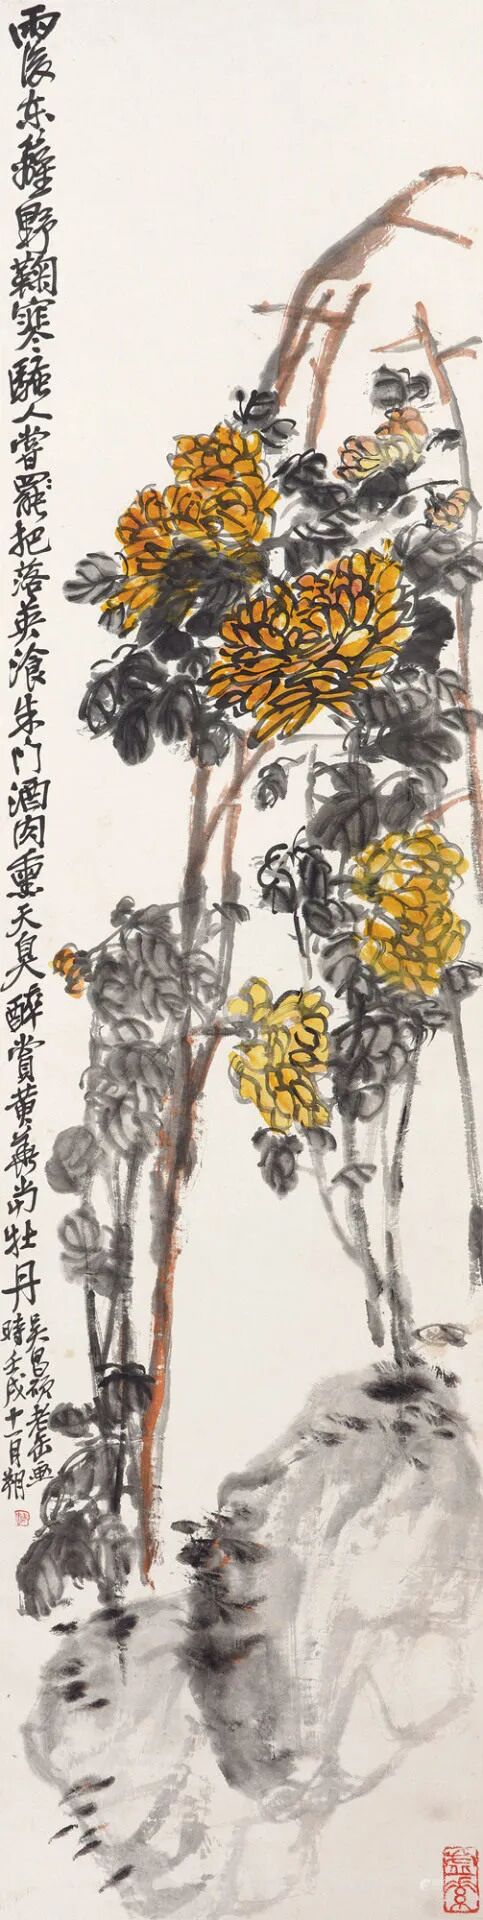 雨後東籬野鞠寒騷人嘗罷把落英湌朱門酒肉熏天臭醉賞黃華當牡丹
吳昌碩老缶畫
時壬戌十一月朔